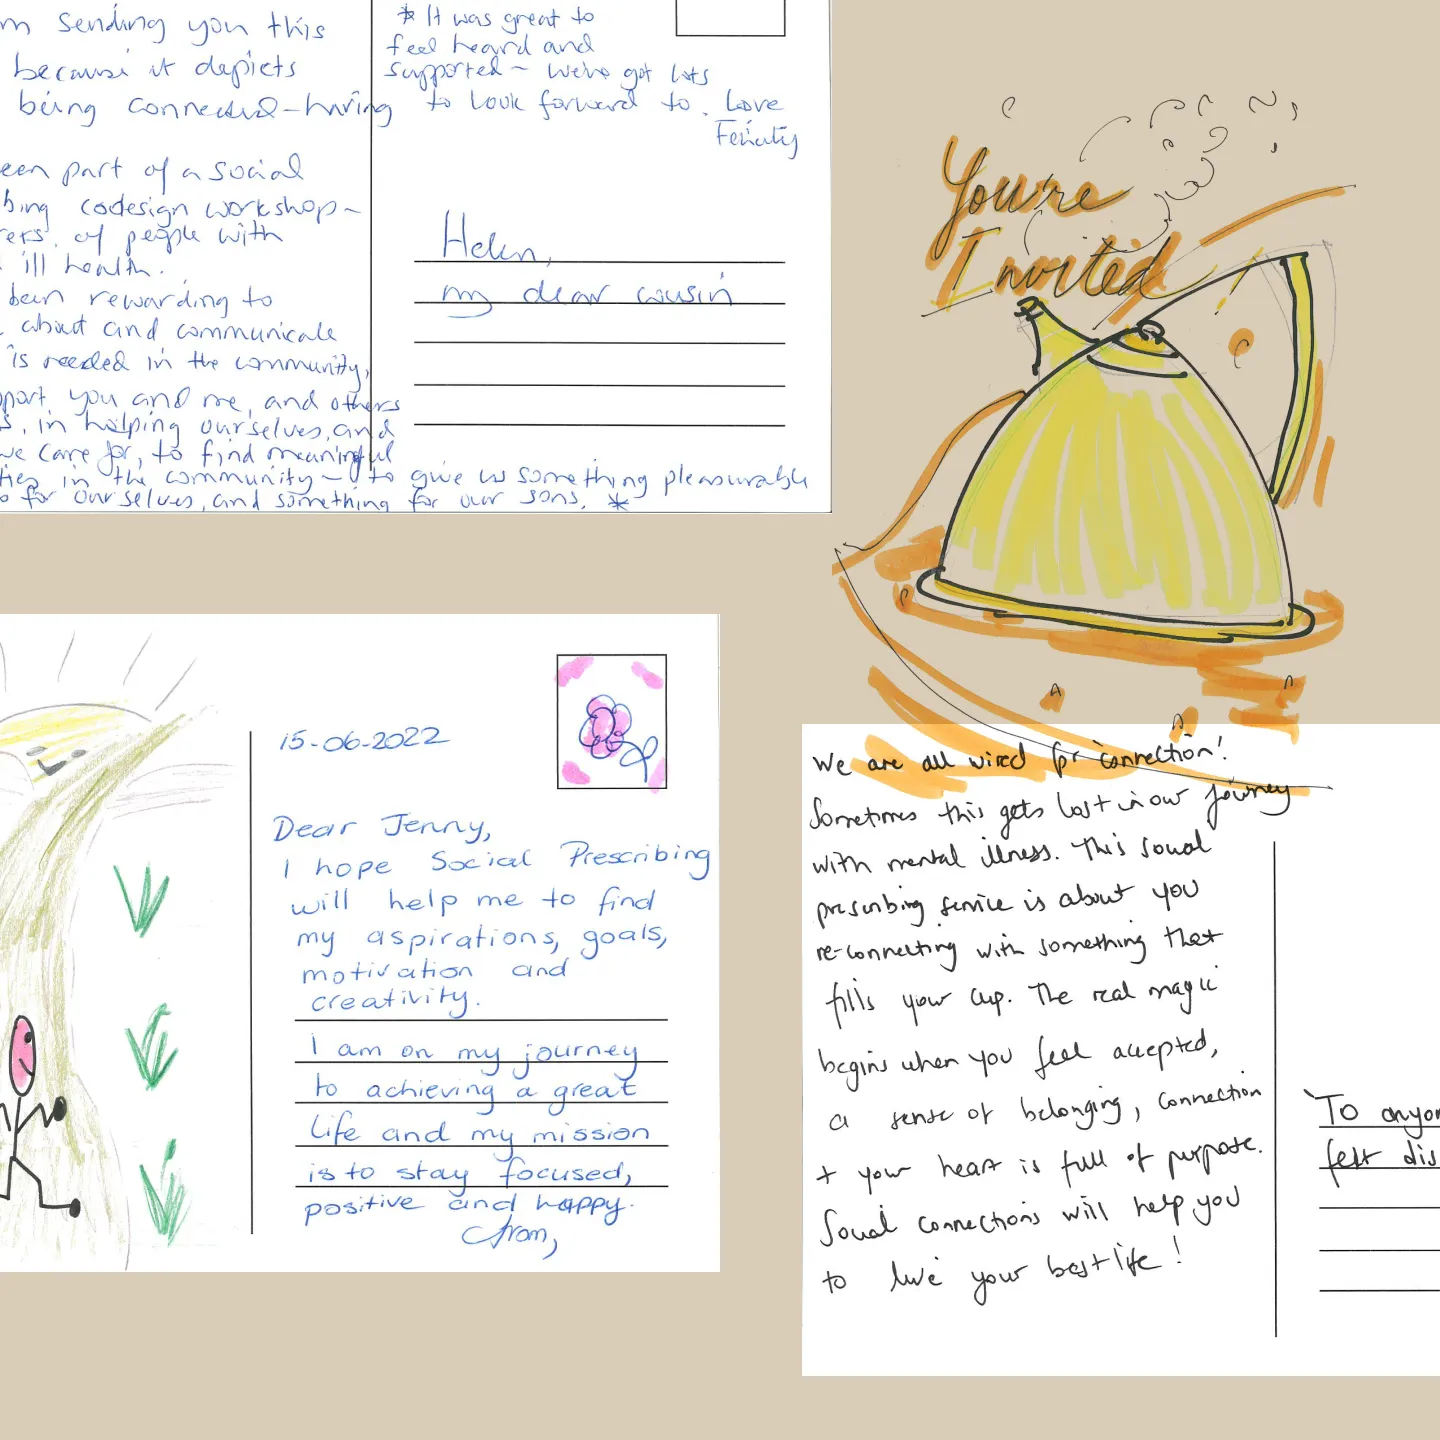 m sending you this
because it depicts
being connected-having
een part of a social
bing codesign workshop-
rers. of people with
ill health.
been rewarding to
about and communicate
is needed in the community,
pport, you and me, and others
s, in helping ourselves, and
we care for, to find meaningful
ties in the community - to give us something pleasurable
o for ourselves, and something for our sons. *
* It was great to
feel heard and
supported - we've got lots
to look forward to. Love
Felicity
Helen,
my dear cousin
You're
Invited
15-06-2022
Dear Jenny,
I hope Social Prescribing
will help me to find
my aspirations, goals,
motivation and
creativity.
I am on my journey
to achieving a great
life and my mission
is to stay focused,
positive and happy.
from,
We are all wired for connection!
Sometimes this gets lost in our journey
with mental illness. This social
prescribing service is about you
re-connecting with something that
fills your cup. The real magic
begins when you feel accepted,
a sense of belonging, connection
+ your heart is full of purpose.
Social connections will help you
to live your best life!
To anyon
felt dis